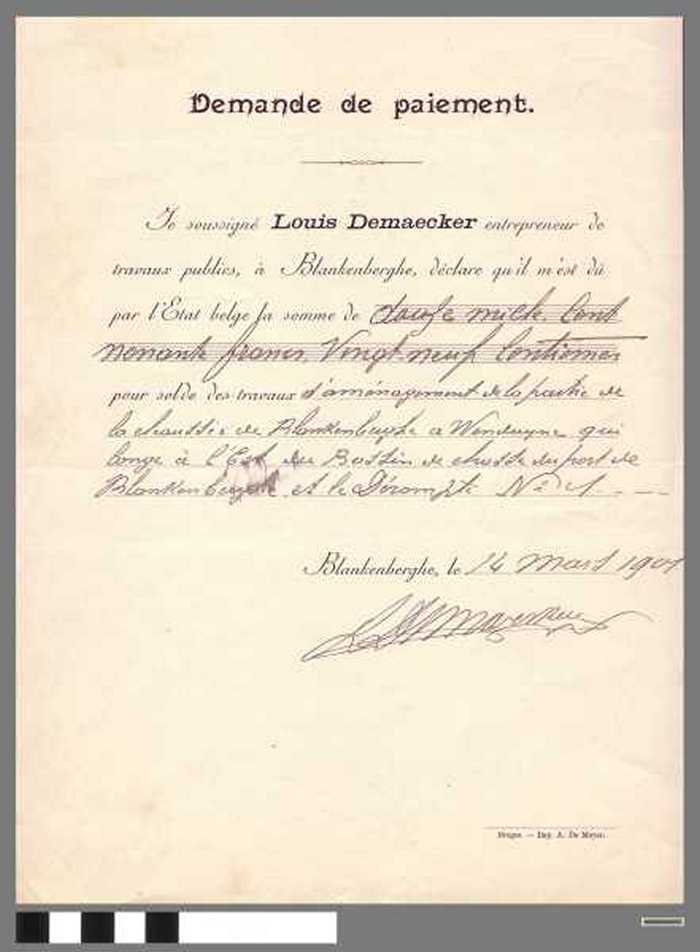 Demande de paiement.
Je soussigné Louis Demaecker entrepreneur de
travaux publics, à Blankenberghe, déclare qu'il m'est dû
par l'Etat belge la somme de douze mille Cent
nonante francs, Vingt-neuf Centiemes
pour solde des travaux d'aménagement de la partie de
la chaussée de Blankenberghe a Wenduyne qui
longe à l'Est du Bassin de chasse du port de
Blankenberghe et le Décompte No 1.
Blankenberghe, le 14 Mars 1901
Bruges. — Imp. A. De Meyer.